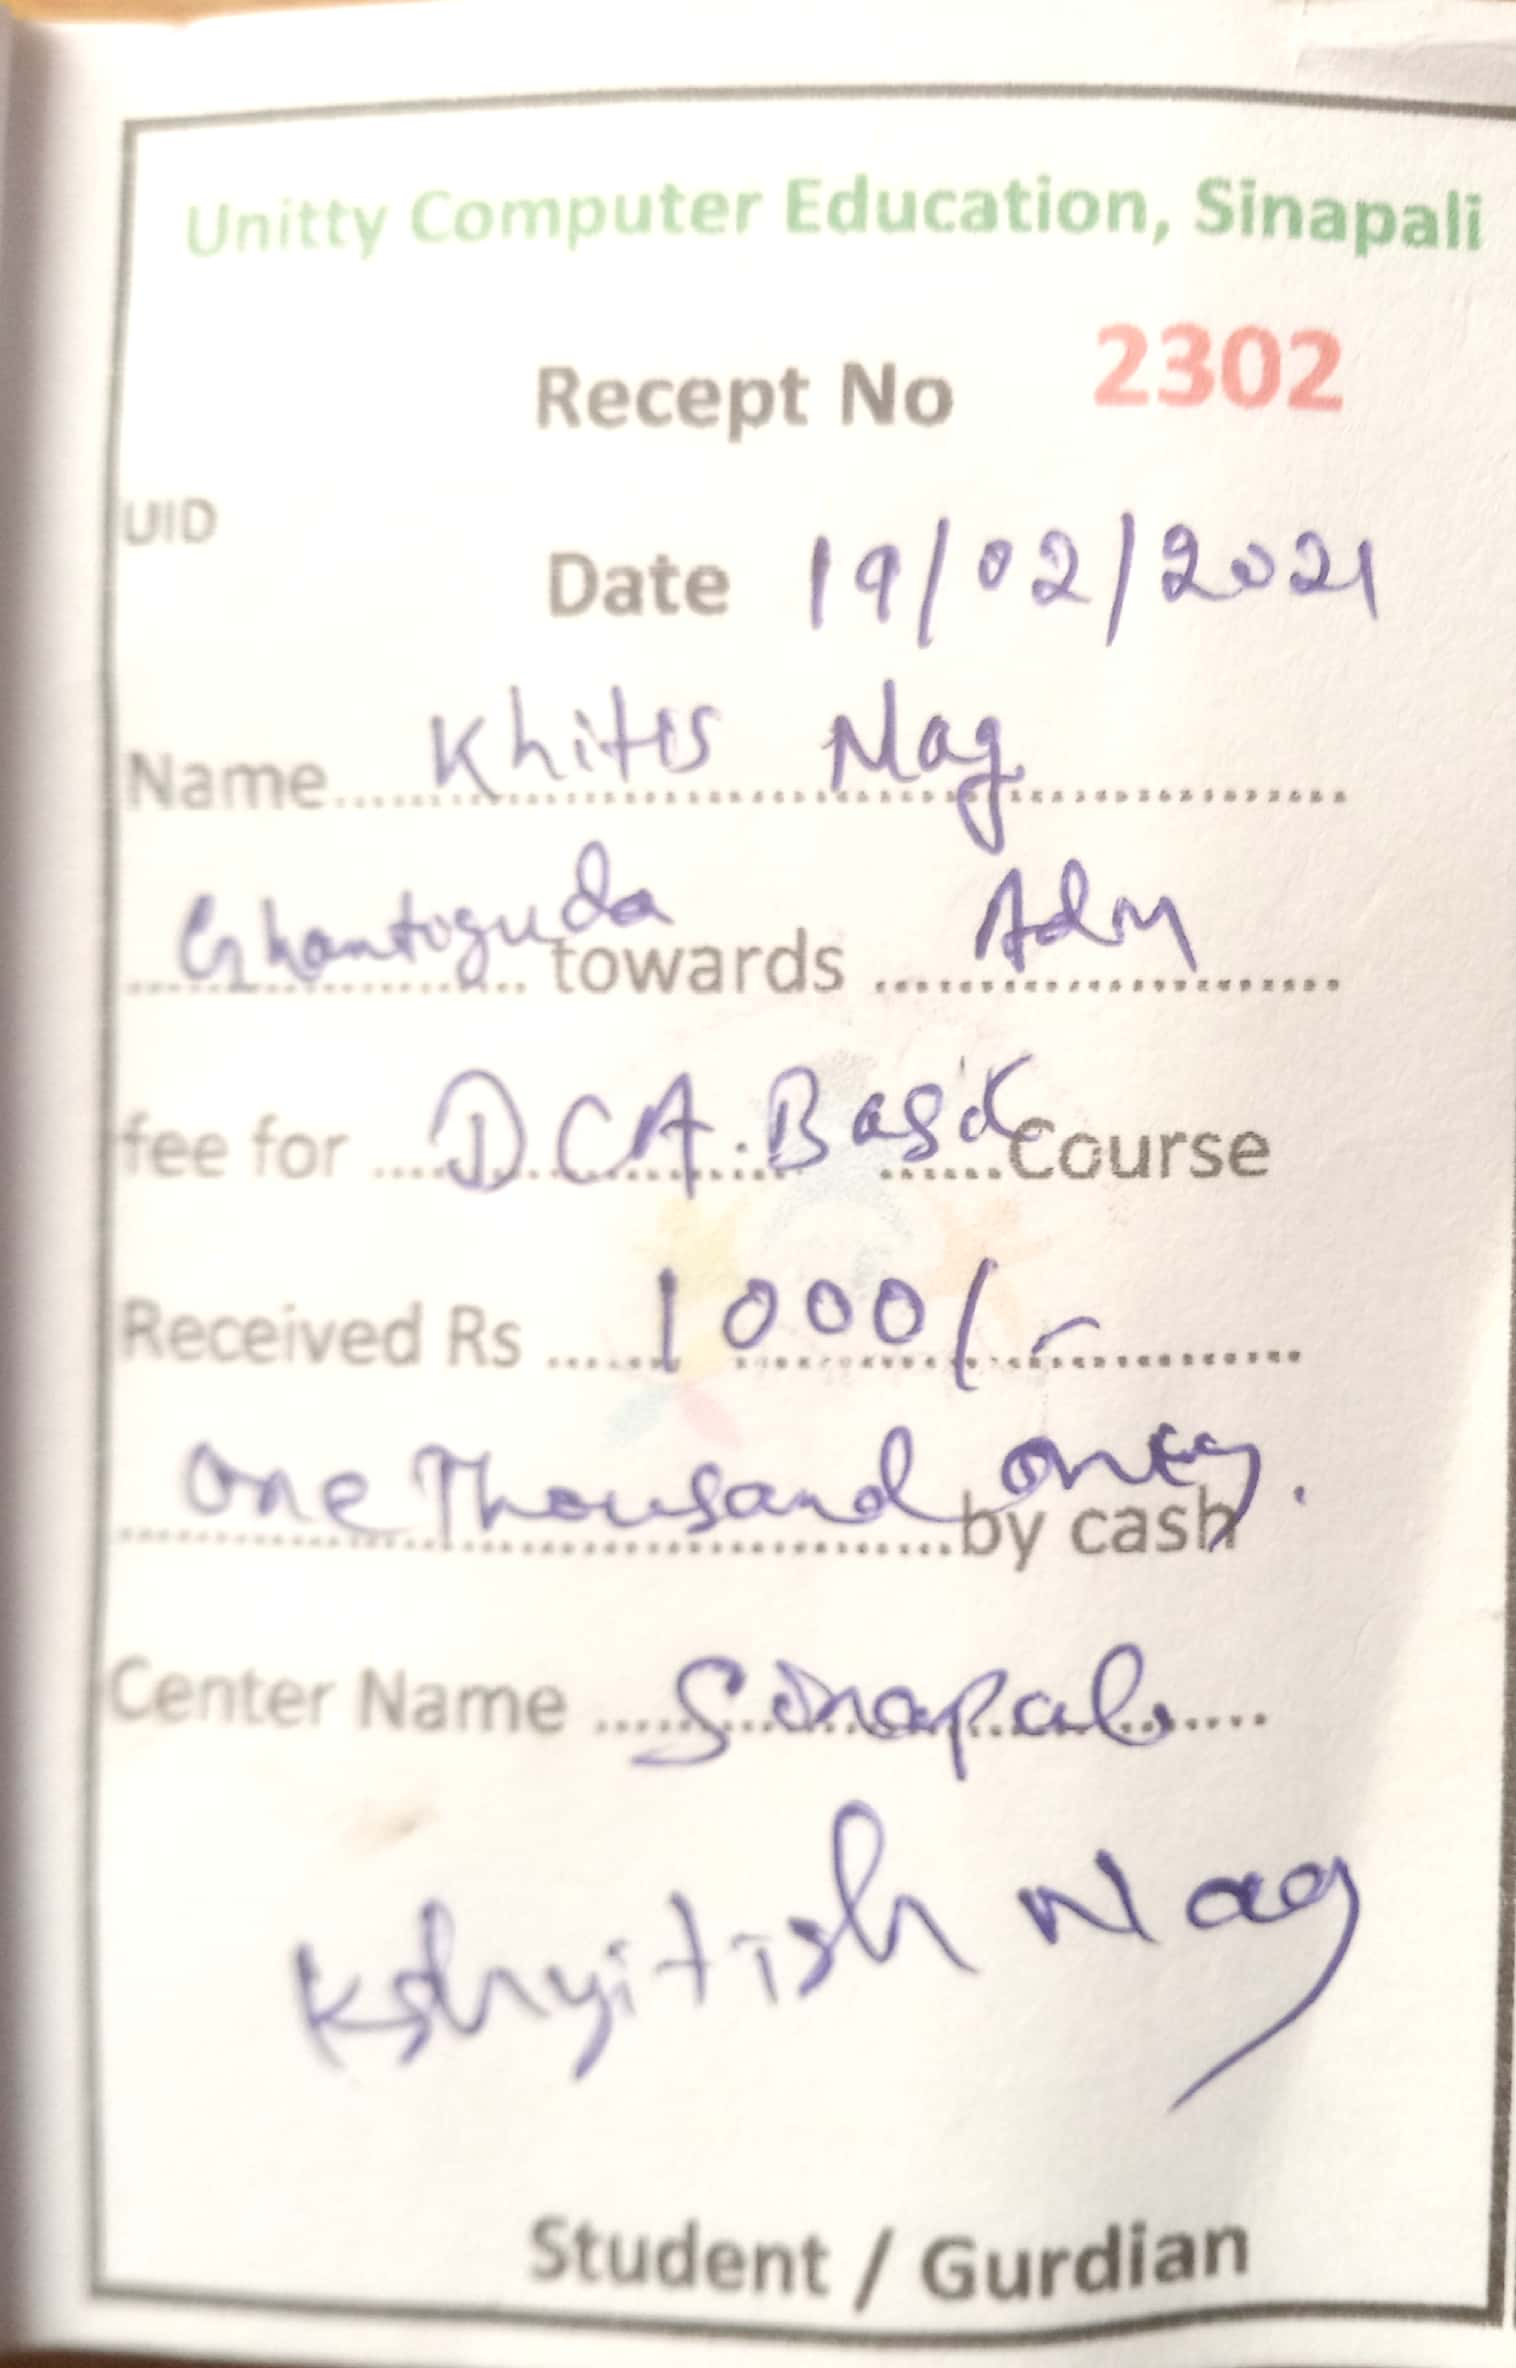 Unitty Computer Education, Sinapali
Recept No 2302
UID
Date 19/02/2021
Name Khitis Nag
Ghantiguda towards Adm
fee for D.C.A. Basic Course
Received Rs 1000/-
One Thousand only. by cash
Center Name Sinapali
Kshyitish Nag
Student / Gurdian